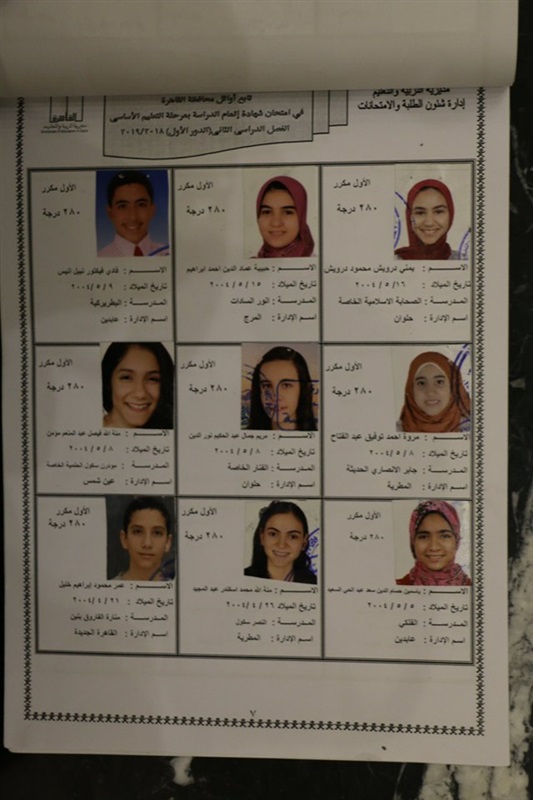 مديرية التربية والتعليم
إدارة شئون الطلبة والامتحانات
تابع أوائل محافظة القاهرة
في امتحان شهادة إتمام الدراسة بمرحلة التعليم الأساسي
الفصل الدراسي الثاني (الدور الأول) ٢٠١٩/٢٠١٨
القاهرة
الأول مكرر
٢٨٠ درجة
الاســـم : يمني درويش محمود درويش
تاريخ الميلاد : ١٦ / ٥ / ٢٠٠٤
المـدرسـة : الصحابة الاسلامية الخاصة
اسم الإدارة : حلوان
الأول مكرر
٢٨٠ درجة
الاســـم : حبيبة عماد الدين احمد ابراهيم
تاريخ الميلاد : ١٥ / ٥ / ٢٠٠٤
المـدرسـة : انور السادات
اسم الإدارة : المرج
الأول مكرر
٢٨٠ درجة
الاســـم : فادي فيكتور نبيل انيس
تاريخ الميلاد : ٩ / ٥ / ٢٠٠٤
المـدرسـة : البطريركية
اسم الإدارة : عابدين
الأول مكرر
٢٨٠ درجة
الاســـم : مروة احمد توفيق عبد الفتاح
تاريخ الميلاد : ٨ / ٥ / ٢٠٠٤
المـدرسـة : جابر الانصاري الحديثة
اسم الإدارة : المطرية
الأول مكرر
٢٨٠ درجة
الاســـم : مريم جمال عبد الحكيم نور الدين
تاريخ الميلاد : ٨ / ٥ / ٢٠٠٤
المـدرسـة : الفنار الخاصة
اسم الإدارة : حلوان
الأول مكرر
٢٨٠ درجة
الاســـم : منة الله فيصل عبد المنعم مؤمن
تاريخ الميلاد : ٨ / ٥ / ٢٠٠٤
المـدرسـة : مودرن سكول الحلمية الخاصة
اسم الإدارة : عين شمس
الأول مكرر
٢٨٠ درجة
الاســـم : ياسمين حسام الدين سعد عبد الحي السعيد
تاريخ الميلاد : ٥ / ٥ / ٢٠٠٤
المـدرسـة : الفلكي
اسم الإدارة : عابدين
الأول مكرر
٢٨٠ درجة
الاســـم : منة الله محمد اسكندر عبد المجيد
تاريخ الميلاد : ٢٦ / ٤ / ٢٠٠٤
المـدرسـة : النصر سكول
اسم الإدارة : المطرية
الأول مكرر
٢٨٠ درجة
الاســـم : عمر محمود إبراهيم خليل
تاريخ الميلاد : ٢١ / ٤ / ٢٠٠٤
المـدرسـة : منارة الفاروق بنين
اسم الإدارة : القاهرة الجديدة
٧